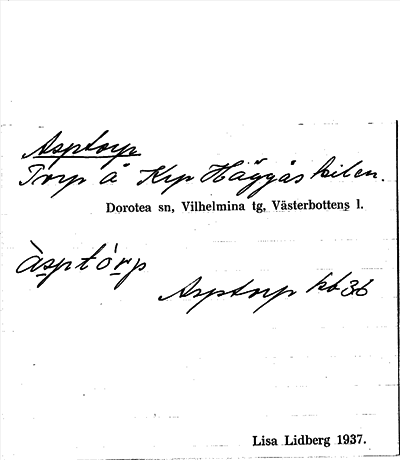 Asptorp
Torp å Krp Häggås kilen.
Dorotea sn, Vilhelmina tg, Västerbottens l.
Àsptórp
Asptorp kb 36
Lisa Lidberg 1937.